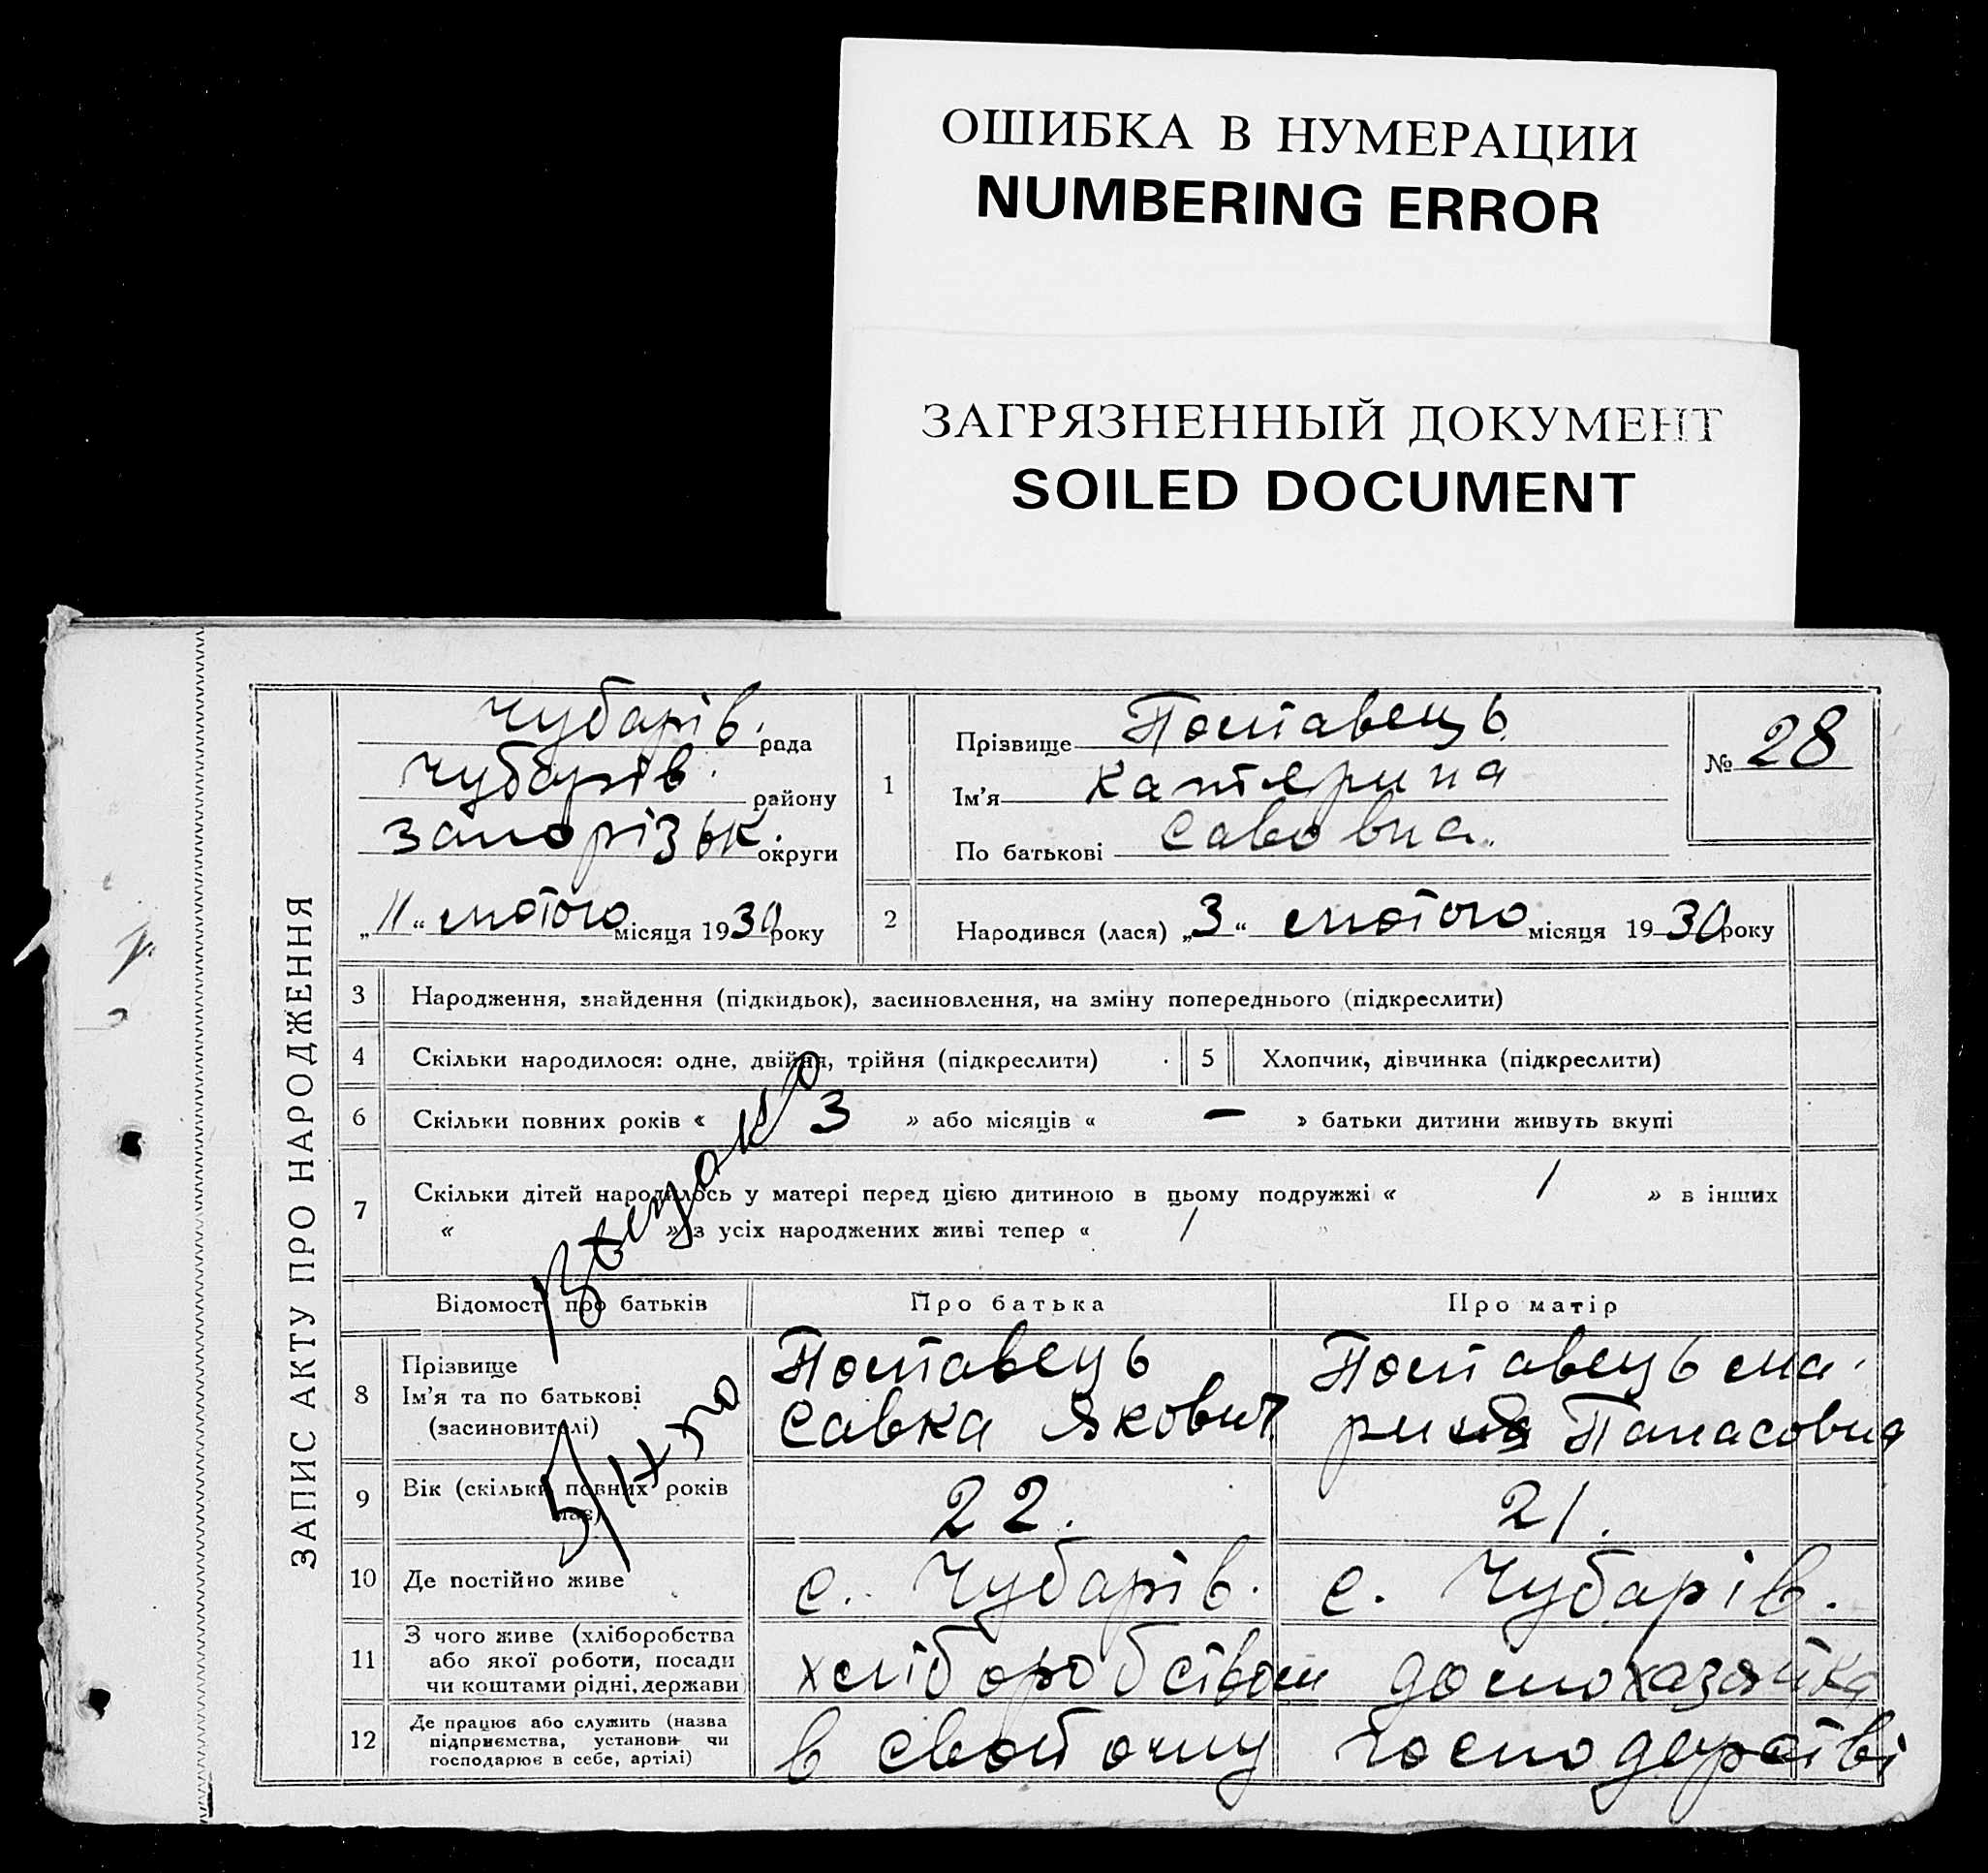 ОШИБКА В НУМЕРАЦИИ
NUMBERING ERROR
ЗАГРЯЗНЕННЫЙ ДОКУМЕНТ
SOILED DOCUMENT
ЗАПИС АКТУ ПРО НАРОДЖЕННЯ
Чубарів. рада
Чубарів. району
Запорізьк. округи
„11“ лютого місяця 1930 року
1 Прізвище Поставець
Ім'я Катерина
По батькові Савовна.
№ 28
2 Народився (лася) „3“ лютого місяця 1930 року
3 Народження, знайдення (підкидьок), засиновлення, на зміну попереднього (підкреслити)
4 Скільки народилося: одне, двійня, трійня (підкреслити)
5 Хлопчик, дівчинка (підкреслити)
6 Скільки повних років « 3 » або місяців « — » батьки дитини живуть вкупі
7 Скільки дітей народилось у матері перед цією дитиною в цьому подружжі « 1 » в інших
« » з усіх народжених живі тепер « 1 »
Відомості про батьків Про батька Про матір
8 Прізвище
Ім'я та по батькові
(засновителі)
Поставець
Савка Якович
Поставець Ма-
рина Панасовна
9 Вік (скільки повних років має)
22. 21.
10 Де постійно живе с. Чубарів. с. Чубарів.
11 З чого живе (хліборобства
або якої роботи, посади
чи коштами рідні, держави)
хліборобством домохазяйка
12 Де працює або служить (назва
підприємства, установи чи
господарює в себе, артілі)
в свойому господарстві